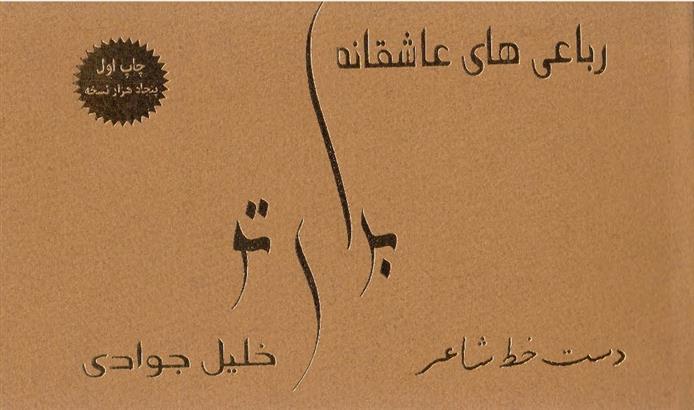 رباعی های عاشقانه
چاپ اول
پنجاه هزار نسخه
دست خط شاعر
خلیل جوادی